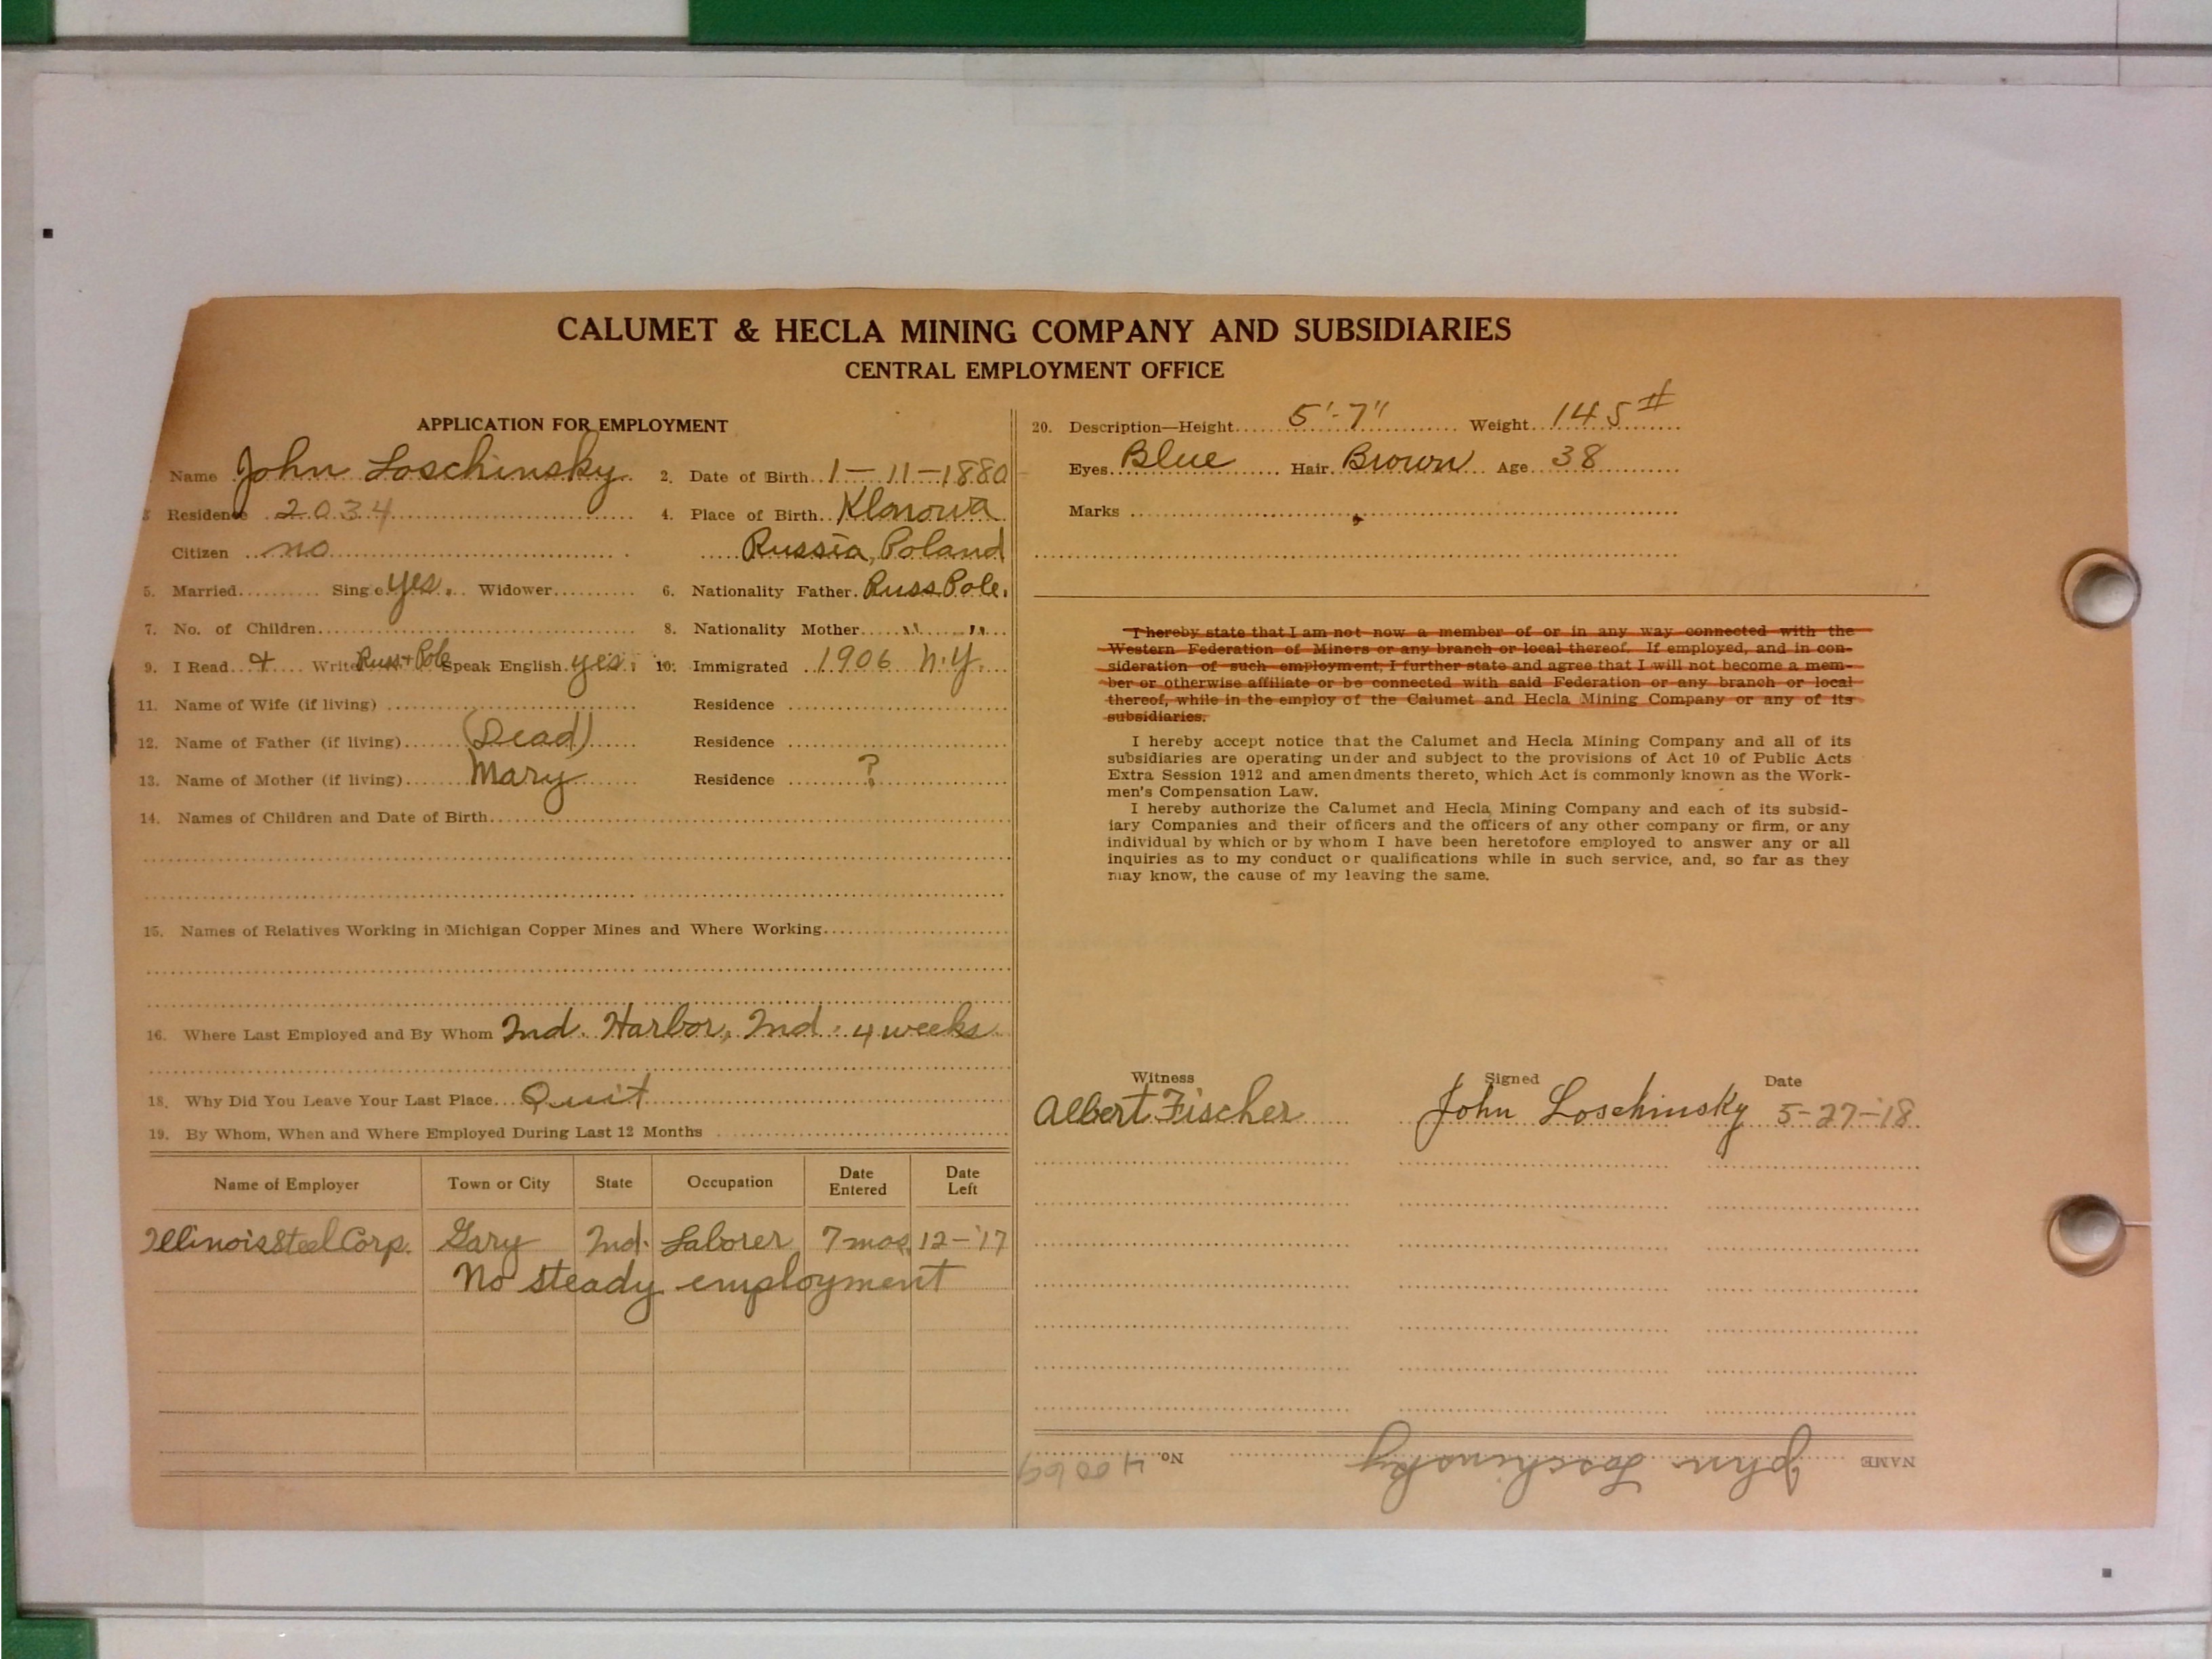 CALUMET & HECLA MINING COMPANY AND SUBSIDIARIES
CENTRAL EMPLOYMENT OFFICE
APPLICATION FOR EMPLOYMENT
Name John Loschinsky 2. Date of Birth 1-11-1880
3 Residence 2034 4. Place of Birth Klonowa
Citizen no Russia, Poland
5. Married Single yes. Widower 6. Nationality Father Russ Pole.
7. No. of Children 8. Nationality Mother " "
9. I Read + Write Russ + Pole Speak English yes. 10. Immigrated 1906 N.Y.
11. Name of Wife (if living) Residence
12. Name of Father (if living) (Dead) Residence
13. Name of Mother (if living) Mary Residence ?
14. Names of Children and Date of Birth
15. Names of Relatives Working in Michigan Copper Mines and Where Working
16. Where Last Employed and By Whom Ind. Harbor, Ind. 4 weeks
18. Why Did You Leave Your Last Place Quit
19. By Whom, When and Where Employed During Last 12 Months
Name of Employer Town or City State Occupation Date Entered Date Left
Illinois Steel Corp. Gary Ind. Laborer 7 mos. 12-'17
No steady employment
20. Description—Height 5'-7" Weight 145#
Eyes Blue Hair Brown Age 38
Marks
I hereby state that I am not now a member of or in any way connected with the
Western Federation of Miners or any branch or local thereof. If employed, and in con-
sideration of such employment, I further state and agree that I will not become a mem-
ber or otherwise affiliate or be connected with said Federation or any branch or local
thereof, while in the employ of the Calumet and Hecla Mining Company or any of its
subsidiaries.
I hereby accept notice that the Calumet and Hecla Mining Company and all of its
subsidiaries are operating under and subject to the provisions of Act 10 of Public Acts
Extra Session 1912 and amendments thereto, which Act is commonly known as the Work-
men's Compensation Law.
I hereby authorize the Calumet and Hecla Mining Company and each of its subsid-
iary Companies and their officers and the officers of any other company or firm, or any
individual by which or by whom I have been heretofore employed to answer any or all
inquiries as to my conduct or qualifications while in such service, and, so far as they
may know, the cause of my leaving the same.
Witness Signed Date
Albert Fischer John Loschinsky 5-27-'18
NAME John Loschinsky No. 40069